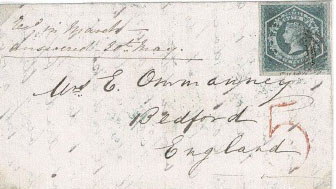 in March
answered 20th May.
Mrs E. Ommanney
Bedford
England
5